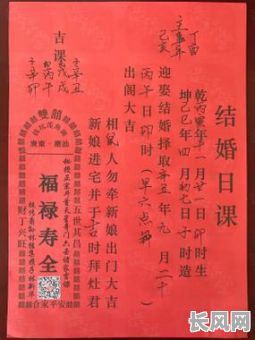 结婚日课
丁酉
己亥
乾丙寅年十一月廿一日卯时生
坤己巳年四月初九日子时造
迎娶结婚择取辛丑年九月二十
丙午日卯时（早六点
出阁大吉
相鼠人勿牵新娘出门大吉
新娘进宅并于吉时拜灶君
吉课
辛丑
戊戌
丙午
辛卯
五世其昌
福禄寿全
财丁兴旺
合家平安
长风网